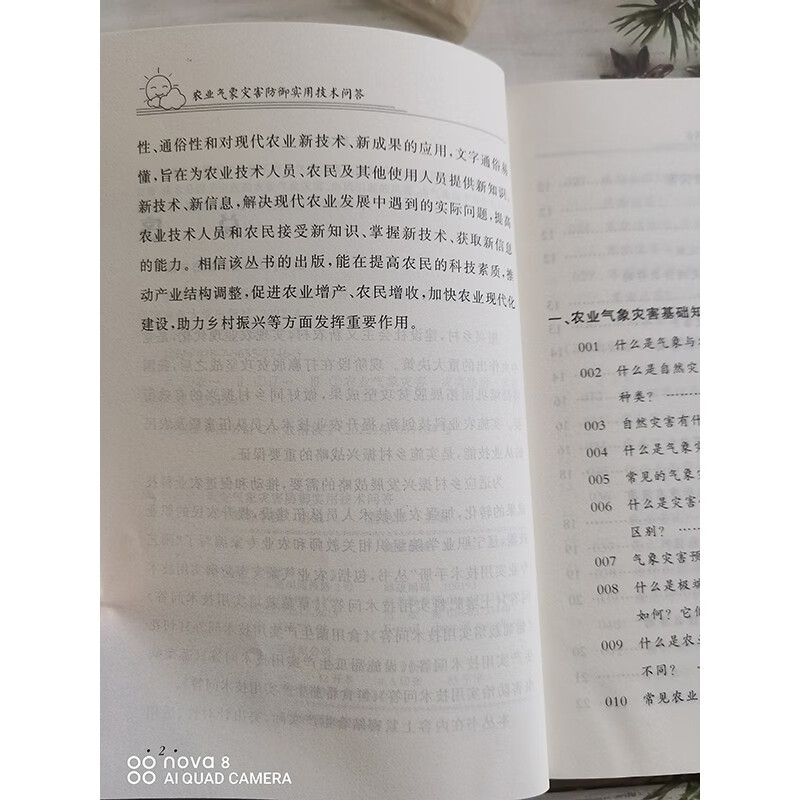 农业气象灾害防御实用技术问答
性、通俗性和对现代农业新技术、新成果的应用，文字通俗易
懂，旨在为农业技术人员、农民及其他使用人员提供新知识、
新技术、新信息，解决现代农业发展中遇到的实际问题，提高
农业技术人员和农民接受新知识、掌握新技术、获取新信息
的能力。相信该丛书的出版，能在提高农民的科技素质，推
动产业结构调整，促进农业增产、农民增收，加快农业现代化
建设，助力乡村振兴等方面发挥重要作用。
· 2 ·
一、农业气象灾害基础知
001 什么是气象与
002 什么是自然灾
种类？
003 自然灾害有什
004 什么是气象灾
005 常见的气象
006 什么是灾害
区别？
007 气象灾害预
008 什么是极端
如何？它们
009 什么是农业
不同？
010 常见农业
nova 8
AI QUAD CAMERA